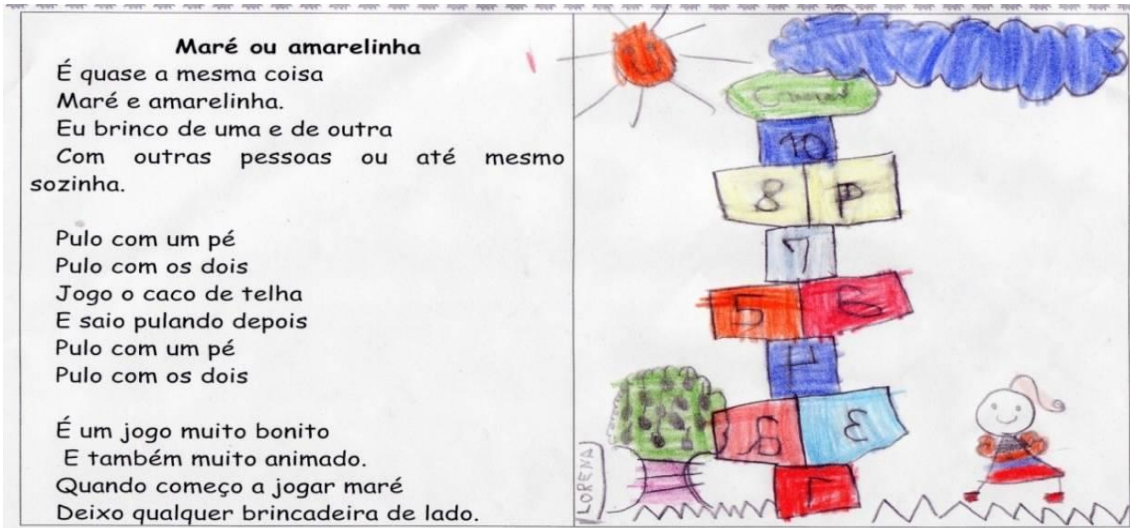 Maré ou amarelinha
É quase a mesma coisa
Maré e amarelinha.
Eu brinco de uma e de outra
Com outras pessoas ou até mesmo
sozinha.
Pulo com um pé
Pulo com os dois
Jogo o caco de telha
E saio pulando depois
Pulo com um pé
Pulo com os dois
É um jogo muito bonito
E também muito animado.
Quando começo a jogar maré
Deixo qualquer brincadeira de lado.
10
8
7
5 6
3
LORENA